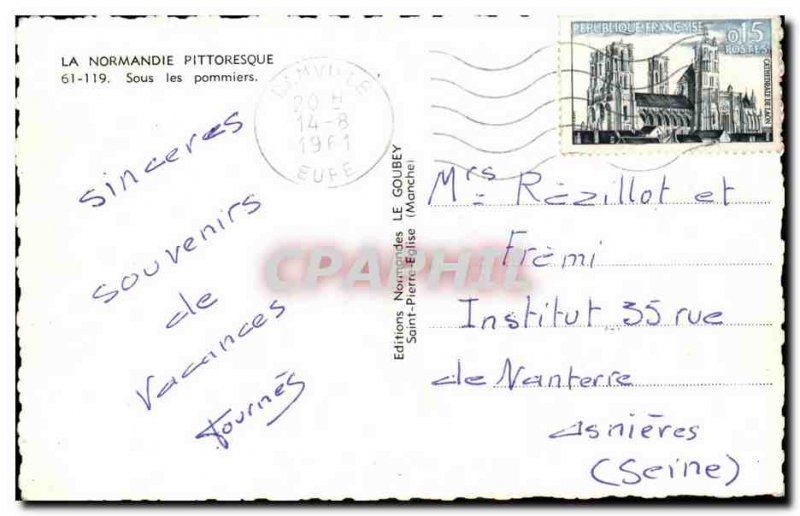 LA NORMANDIE PITTORESQUE
61-119. Sous les pommiers.
sincères
souvenirs
de
vacances
20 H
14-8
1961
EURE
Editions Normandes LE GOUBEY
Saint-Pierre-Eglise (Manche)
REPUBLIQUE FRANÇAISE
0,15
POSTES
CATHEDRALE DE LAON
CPAPHIL
Mrs Rézillot et
Frémi
Institut 35 rue
de Nanterre
Asnières
(Seine)